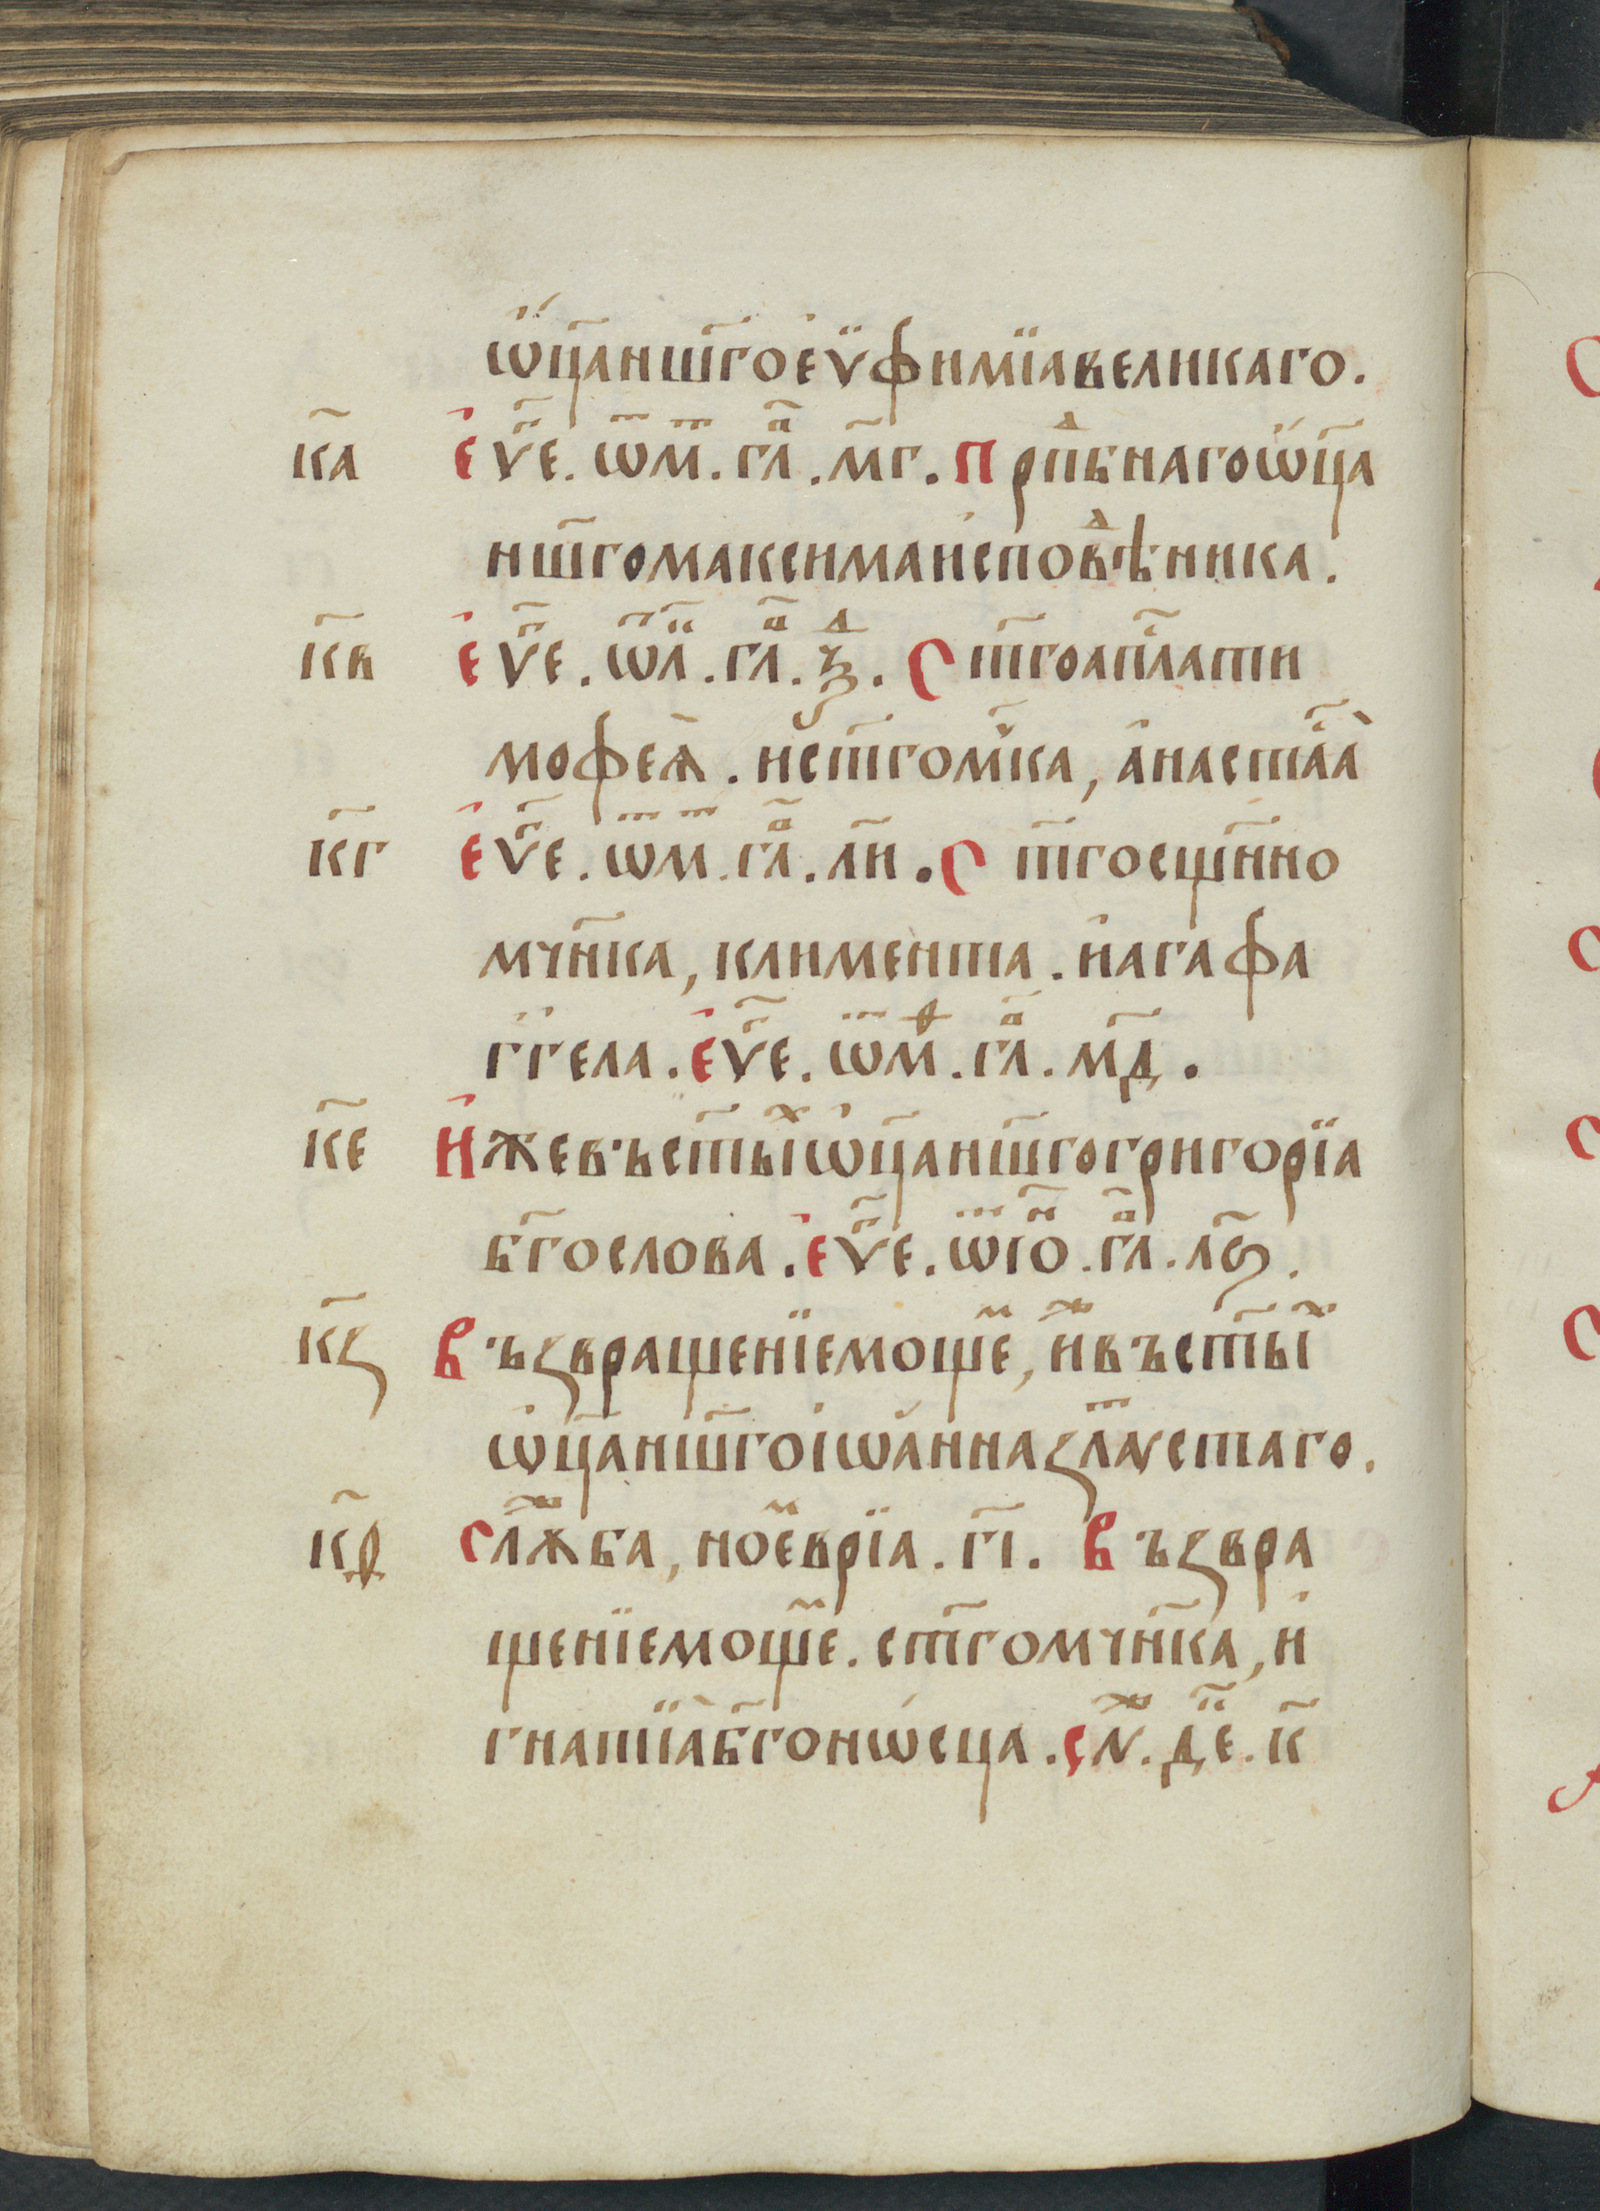 ѡ҆ц҃а нш҃го є҆ѵфимїа великаго.
к҃а є҆ѵⷢ҇е. ѿ м. гл҃а. м҃г. Прпⷣбнаго ѡ҆ц҃а
нш҃го маѯима исповѣⷣника.
к҃в є҆ѵⷢ҇е. ѿ л. гл҃а. ѯ҃д. Ст҃го ап҃ла ти
мофеѧ. и ст҃го мⷱ҇ка, анастаⷭ҇а
к҃г є҆ѵⷢ҇е. ѿ м. гл҃а. л҃и. Ст҃го сщ҃нно
мч҃нка, климента. и агафа
гг҃ела. є҆ѵⷢ҇е. ѿ мр. гл҃а. м҃д.
к҃е Иже въ ст҃ыⷯ ѡ҆ц҃а нш҃го григорїа
бг҃ослова. є҆ѵⷢ҇е. ѿ іѡⷩ҇. гл҃а. л҃ѕ.
к҃з Възвращенїе моще, иже въ ст҃ыⷯ
ѡ҆ц҃а нш҃го іѡанна злаⷮѵстаго.
к҃и слѹⷤба, ноемврїа. г҃і. Възвра
щенїе моще. ст҃го мч҃нка, и
гнатїа бг҃оносца. слⷤ. деⷦ҇. к҃